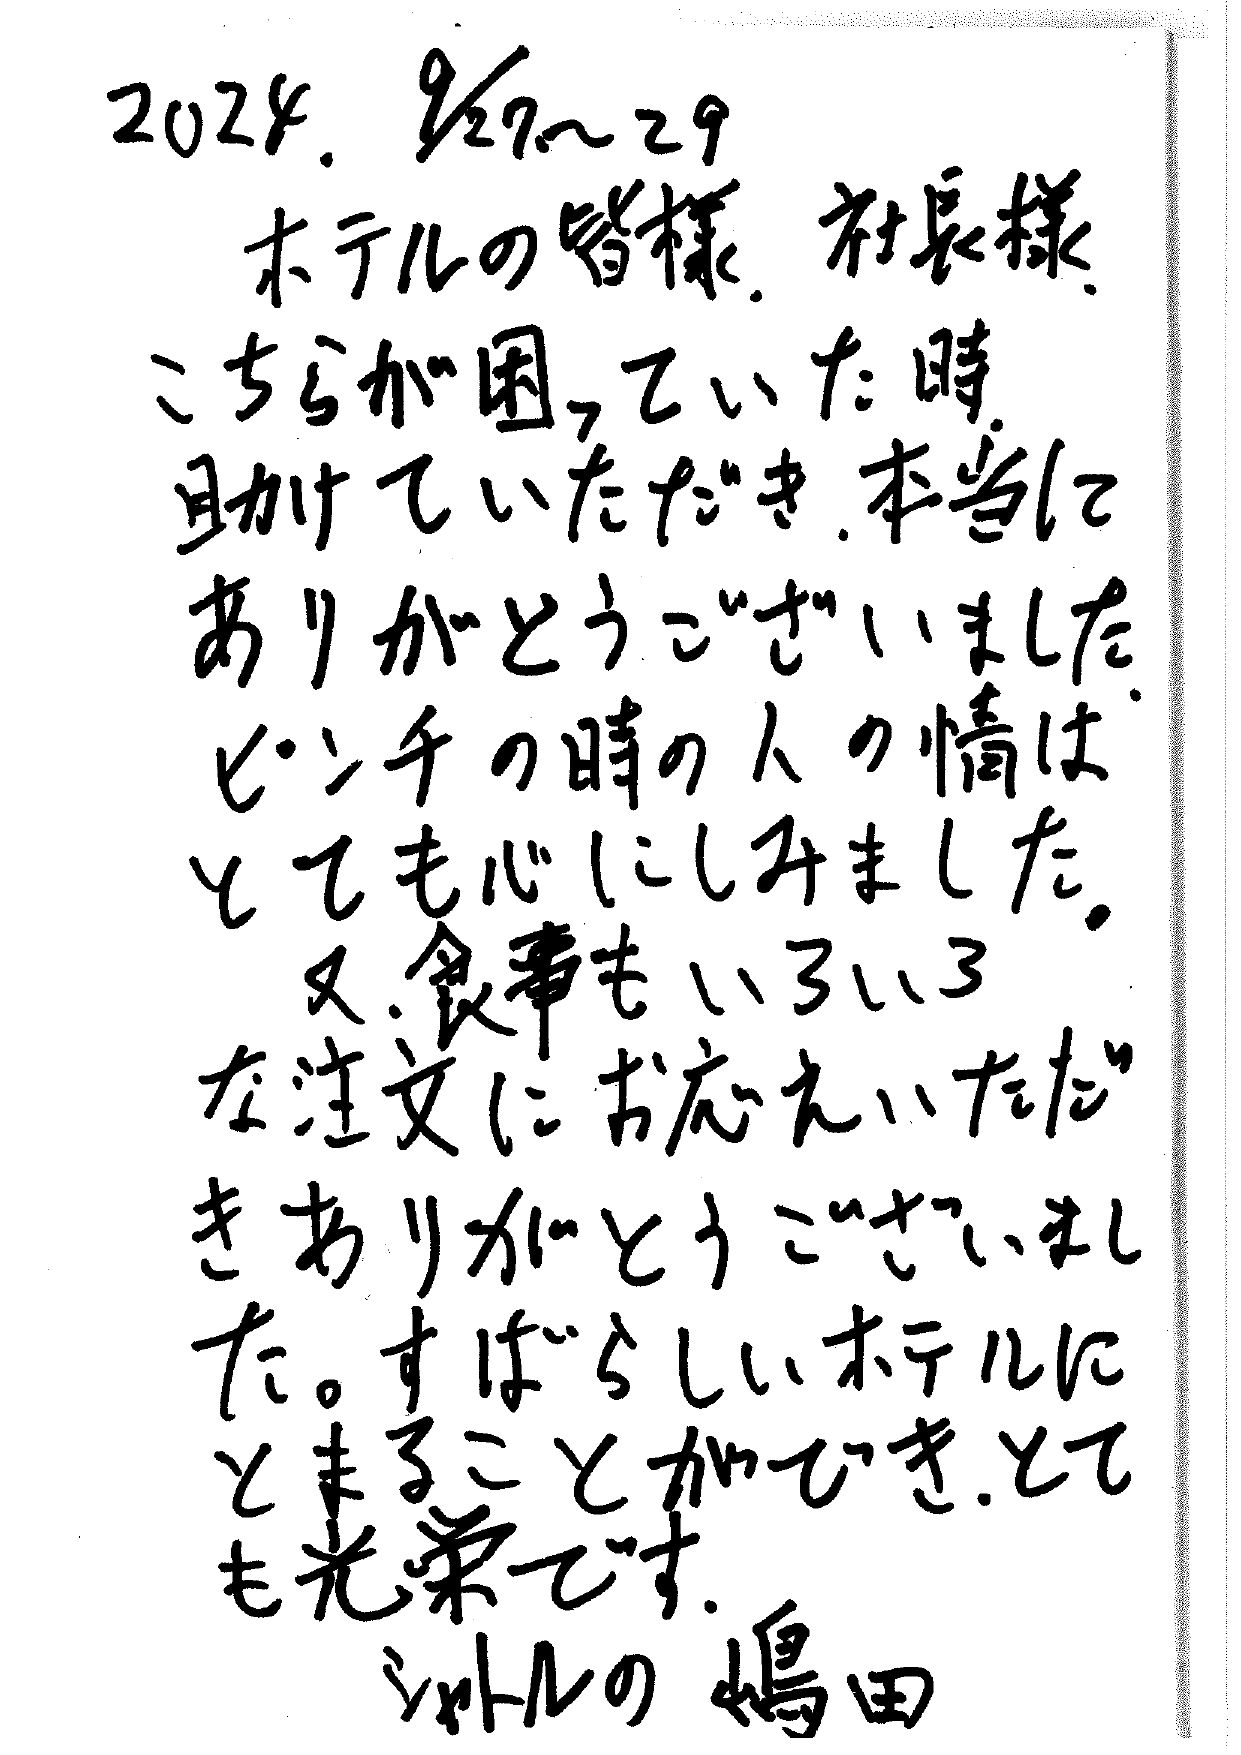 2024. 9/27.〜29
ホテルの皆様. 社長様.
こちらが困っていた時.
助けていただき.本当に
ありがとうございました.
ピンチの時の人の情は
とても心にしみました.
又.食事もいろいろ
な注文にお応えいただ
きありがとうございまし
た。すばらしいホテルに
とまることができ.とて
も光栄です.
シャトルの 嶋田